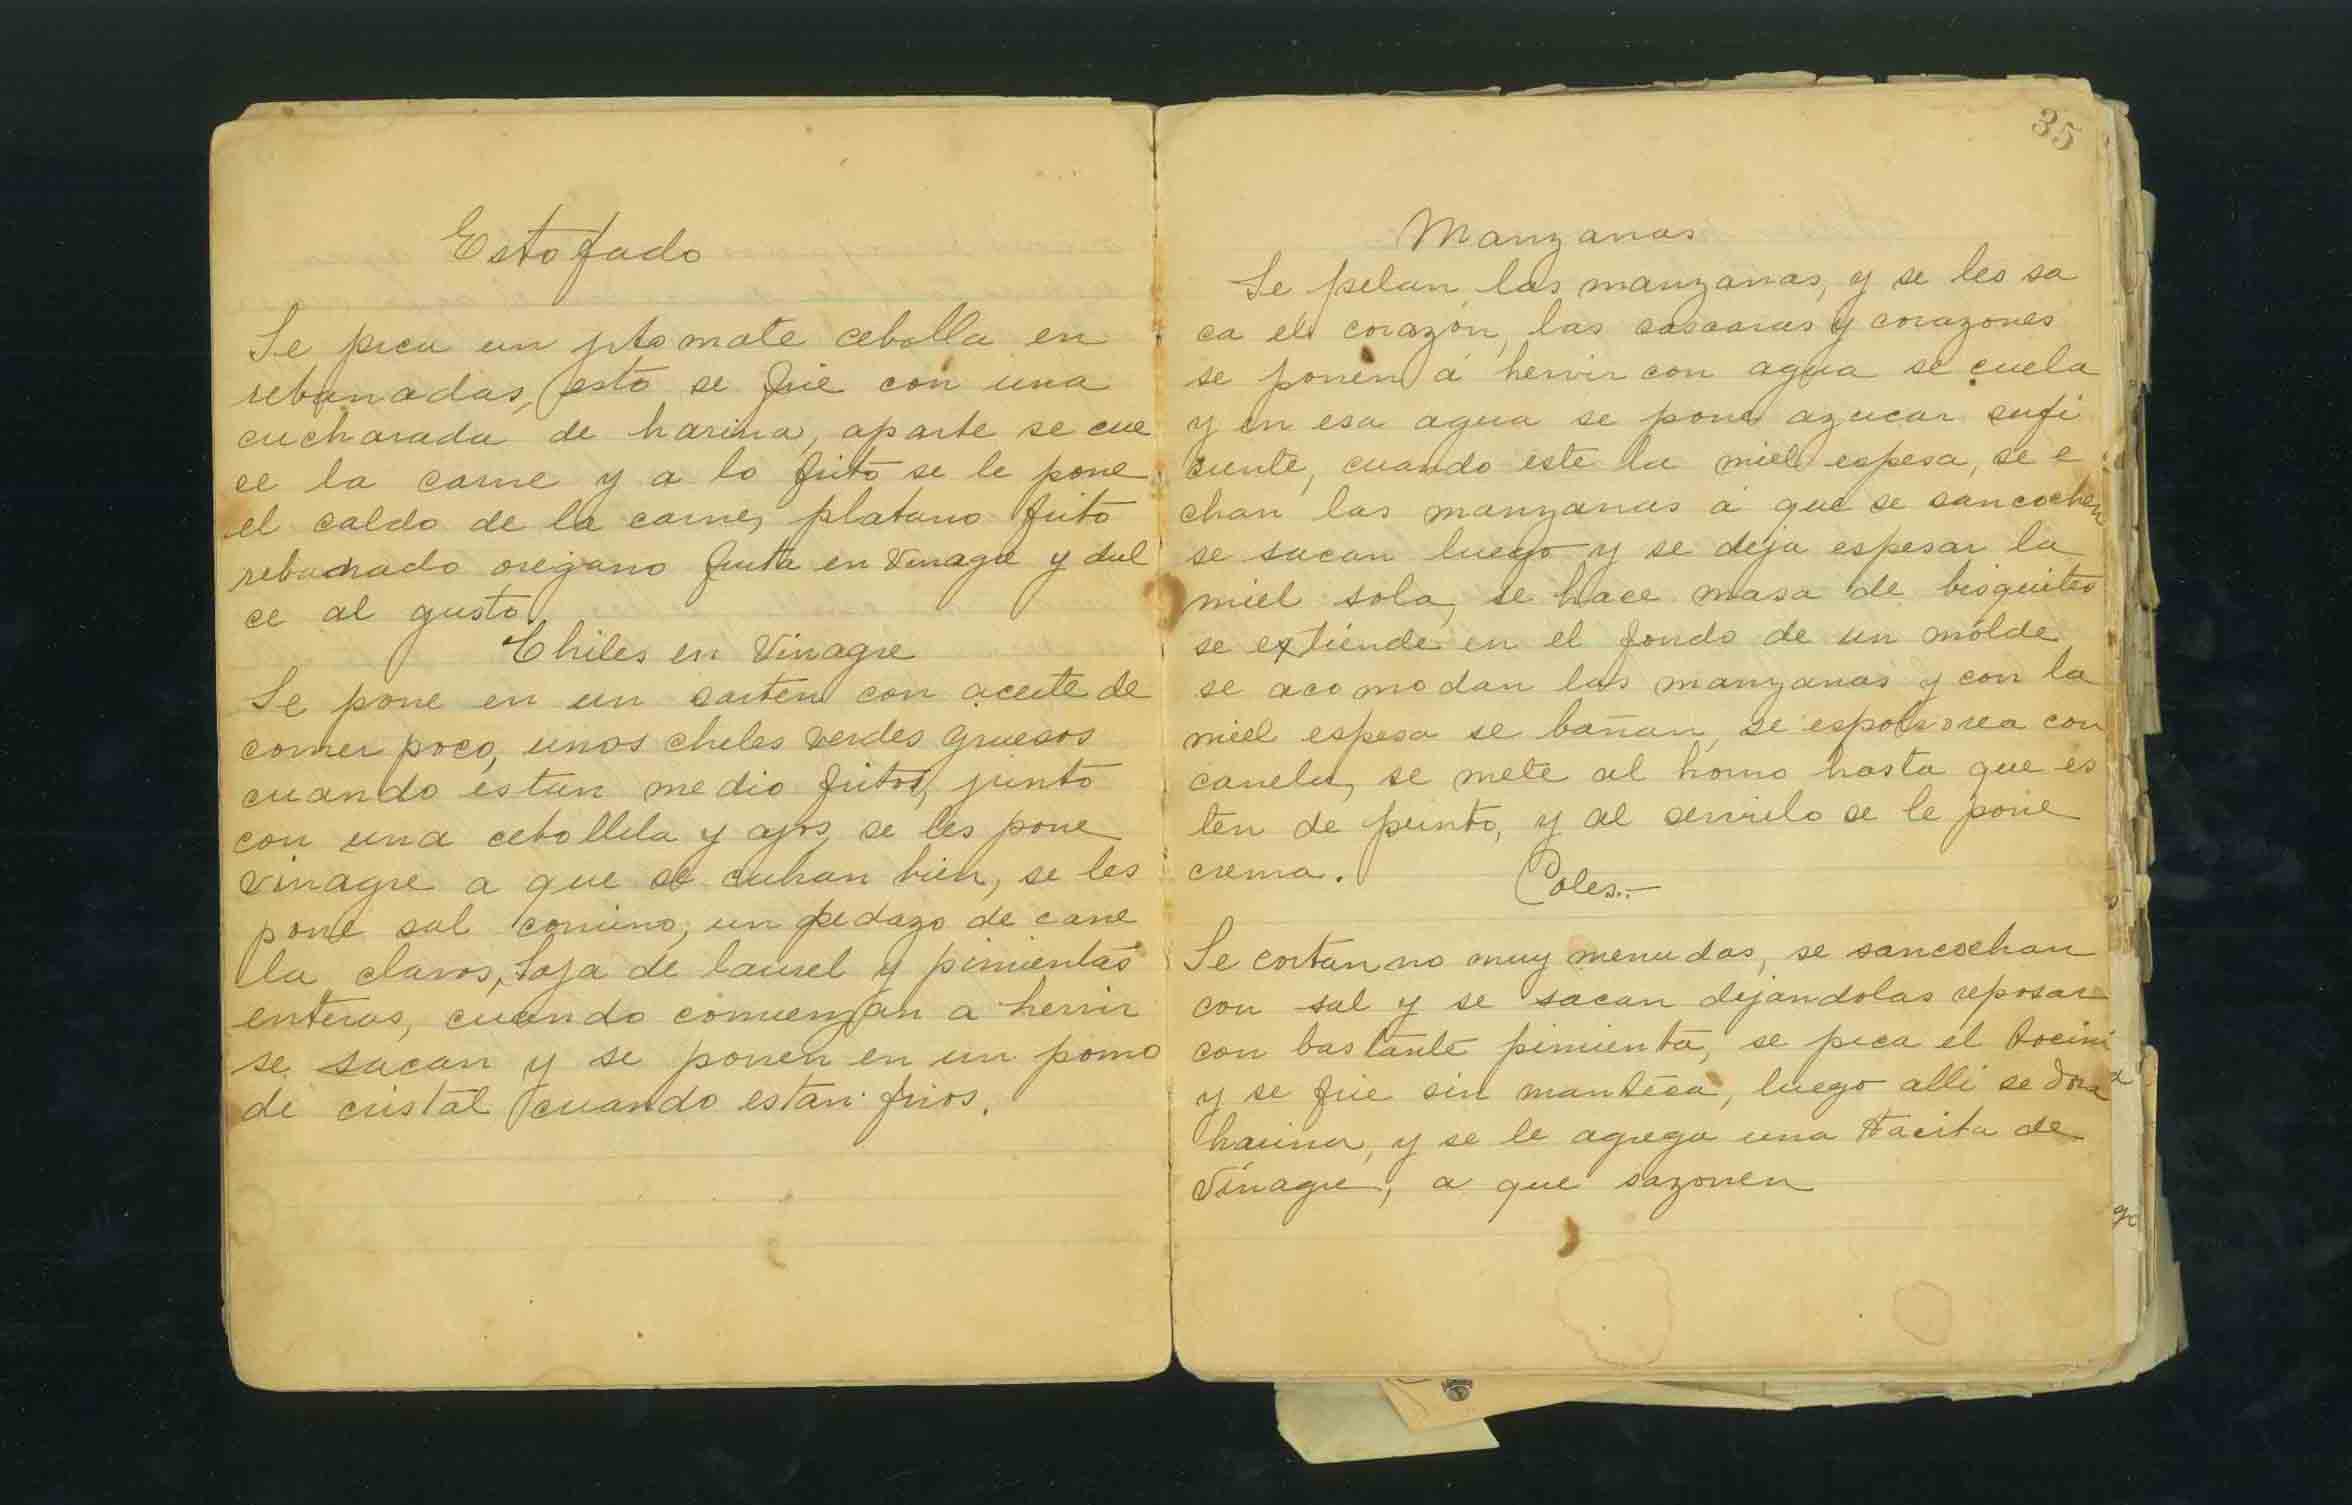 Estofado
Se pica un jitomate cebolla en
rebanadas, esto se frie con una
cucharada de harina, aparte se cue
ce la carne y a lo frito se le pone
el caldo de la carne, platano frito
rebanado oregano fruta en Vinagre y dul
ce al gusto.
Chiles en Vinagre
Se pone en un sarten con aceite de
comer poco, unos chiles verdes gruesos
cuando estan medio fritos, junto
con una cebollita y ajos, se les pone
vinagre a que se cubran bien, se les
pone sal comino, un pedazo de cane
la clavos, hoja de laurel y pimientas
enteras, cuando comienzan a hervir
se sacan y se ponen en un pomo
de cristal cuando estan frios.
35
Manzanas
Se pelan las manzanas, y se les sa
ca el corazón, las cascaras y corazones
se ponen á hervir con agua se cuela
y en esa agua se pone azucar sufi
ciente, cuando este la miel espesa, se e
chan las manzanas á que se sancochen
se sacan luego y se deja espesar la
miel sola, se hace masa de bisquites
se extiende en el fondo de un molde
se acomodan las manzanas y con la
miel espesa se bañan, se espolvorea con
canela, se mete al horno hasta que es
ten de punto, y al servirlo se le pone
crema.
Coles.-
Se cortan no muy menudas, se sancochan
con sal y se sacan dejandolas reposar
con bastante pimienta, se pica el tocino
y se frie sin manteca, luego alli se dora
harina, y se le agrega una tacita de
Vinagre, a que sazonen